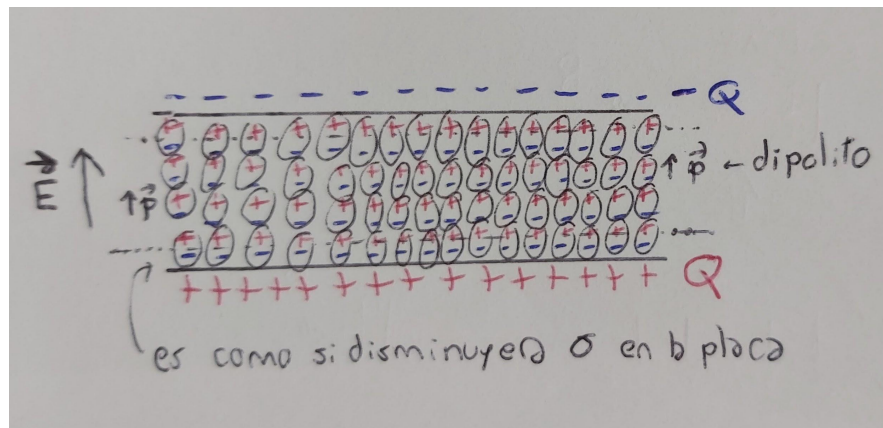 - - - - - - - - - - - - - Q
E
↑ p
↑ p ← dipolito
+ + + + + + + + + + + + + + Q
es como si disminuyera σ en la placa